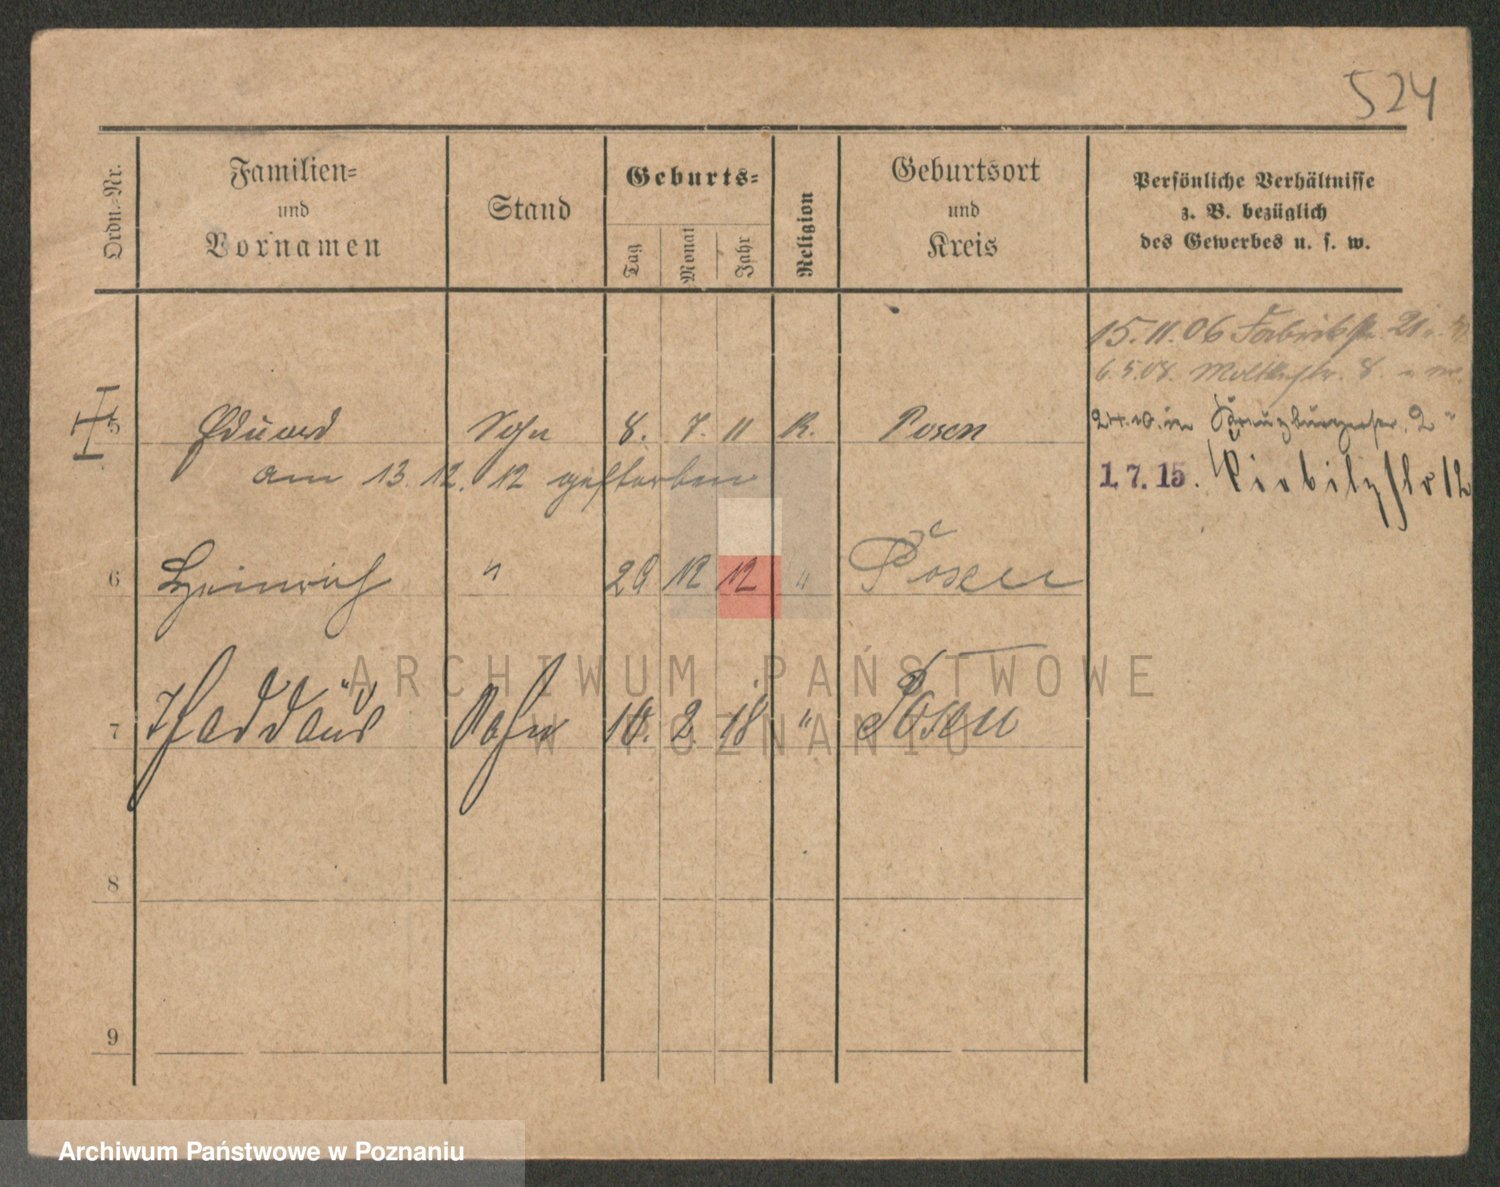 524
Ordn.-Nr.
Familien-
und
Vornamen
Stand
Geburts-
Tag
Monat
Jahr
Religion
Geburtsort
und
Kreis
Persönliche Verhältnisse
z. B. bezüglich
des Gewerbes u. s. w.
15.11.06 Fabrikstr. 21
6.5.08. Moltkestr. 8.
5 Eduard Sohn 8. 7. 11 K. Posen
Kreuzburgerstr. 2
am 13. 12. 12 gestorben
1.7.15. 12
6 Heinrich " 29 12 12 " Posen
7 Thaddäus Sohn 10. 2. 18 " Posen
8
9
ARCHIWUM PAŃSTWOWE
W POZNANIU
Archiwum Państwowe w Poznaniu